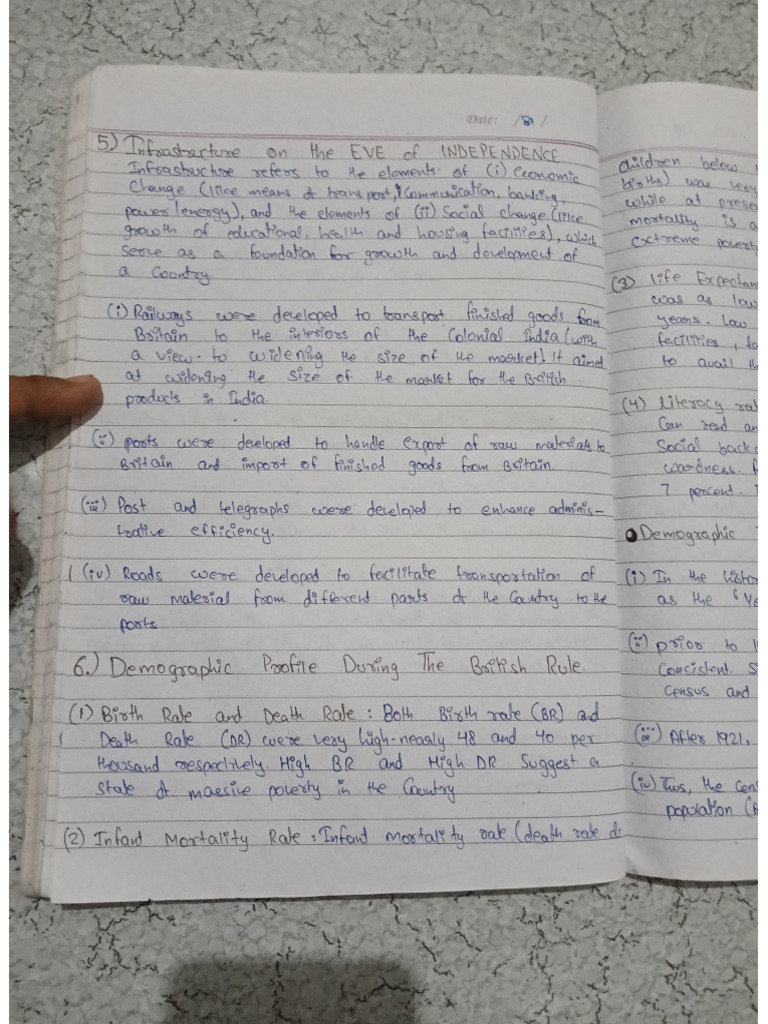 Date: /81/
5) Infrastructure on the EVE of INDEPENDENCE
Infrastructure refers to the elements of (i) economic
change (like means of transport, Communication, banking,
power/energy), and the elements of (ii) Social change (like
growth of educational, health and housing facilities), which
serve as a foundation for growth and development of
a Country
(i) Railways were developed to transport finished goods from
Britain to the interiors of the Colonial India (with
a view to widening the size of the market) It aimed
at widening the size of the market for the British
products in India.
(ii) ports were developed to handle export of raw materials to
Britain and import of finished goods from Britain.
(iii) Post and telegraphs were developed to enhance adminis-
trative efficiency.
(iv) Roads were developed to facilitate transportation of
raw material from different parts of the Country to the
ports
6.) Demographic Profile During The British Rule.
(1) Birth Rate and Death Rate : Both Birth rate (BR) and
Death Rate (DR) were very high-nearly 48 and 40 per
thousand respectively. High BR and High DR Suggest a
State of massive poverty in the Country
(2) Infant Mortality Rate : Infant mortality rate (death rate of
children below
births) was very
while at prese
mortality is a
extreme povert
(3) life Expectan
was as low
years. Low
facilities,
to avail th
(4) literacy rat
Can read an
Social back
wardness.
7 percent.
Demographic
(i) In the histor
as the
(ii) prior to
Consistent. S
Census and
(iii) After 1921,
(iv) Thus, the Cens
population